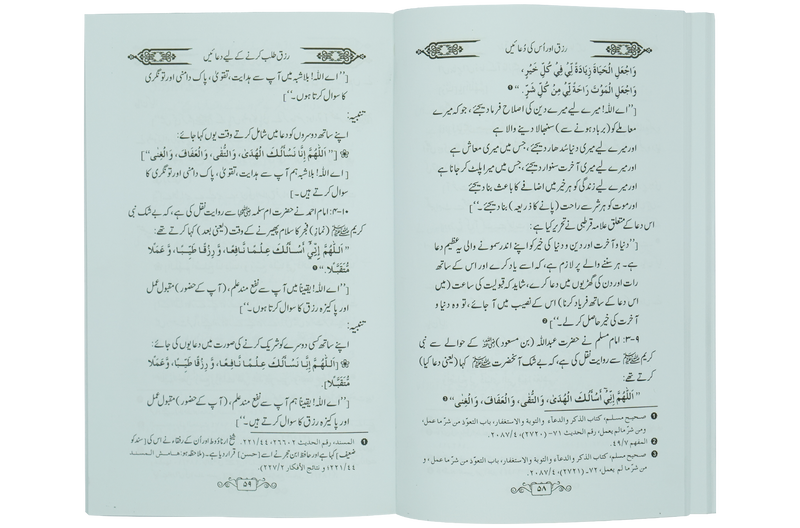 رزق اور اُس کی دُعائیں
وَاجْعَلِ الْحَيَاةَ زِيَادَةً لِّيْ فِيْ كُلِّ خَيْرٍ،
وَاجْعَلِ الْمَوْتَ رَاحَةً لِّيْ مِنْ كُلِّ شَرٍّ.“ ❶
[”اے اللہ! میرے لیے میرے دین کی اصلاح فرما دیجئے، جو کہ میرے
معاملے کو (برباد ہونے سے) سنبھالا دینے والا ہے
اور میرے لیے میری دنیا سدھار دیجئے، جس میں میری معاش ہے
اور میرے لیے میری آخرت سنوار دیجئے، جس میں میرا پلٹ کر جانا ہے
اور میرے لیے زندگی کو ہر خیر میں اضافے کا باعث بنا دیجئے
اور موت کو ہر شر سے راحت (پانے کا ذریعہ) بنا دیجئے۔“]
اس دعا کے متعلق علامہ قرطبی نے تحریر کیا ہے:
[”دنیا و آخرت اور دین و دنیا کی خیر کو اپنے اندر سمونے والی یہ عظیم دعا
ہے۔ ہر سننے والے پر لازم ہے، کہ اسے یاد کرے اور اس کے ساتھ
رات اور دن کی گھڑیوں میں دعا کرے، شاید کہ قبولیت کی ساعت (میں
اس دعا کے ساتھ فریاد کرنا) اس کے نصیب میں آ جائے، تو وہ دنیا و
آخرت کی خیر حاصل کر لے۔“] ❷
۹-۳: امام مسلم نے حضرت عبداللہ (بن مسعود) رضی اللہ عنہ کے حوالے سے نبی
کریم ﷺ سے روایت نقل کی ہے، کہ بے شک آنحضرت ﷺ کہا (یعنی دعا کیا)
کرتے تھے:
”اَللّٰهُمَّ إِنِّيْ أَسْأَلُكَ الْهُدٰى، وَالتُّقٰى، وَالْعَفَافَ، وَالْغِنٰى“ ❸
❶ صحیح مسلم، کتاب الذکر والدعاء والتوبة والاستغفار، باب التعوّذ من شرّ ما عمل،
ومن شرّ مالم یعمل، رقم الحدیث ۷۱-(۲۷۲۰)، ۲۰۸۷/۴.
❷ المفهم ۴۹/۷.
❸ صحیح مسلم، کتاب الذکر والدعاء والتوبة والاستغفار، باب التعوّذ من شرّ ما عمل، و
من شرّ ما لم یعمل، ۷۲-(۲۷۲۱)، ۲۰۸۷/۴.
۵۸
رزق طلب کرنے کے لیے دعائیں
[”اے اللہ! بلاشبہ میں آپ سے ہدایت، تقویٰ، پاک دامنی اور تونگری
کا سوال کرتا ہوں۔“]
تنبیہ:
اپنے ساتھ دوسروں کو دعا میں شامل کرتے وقت یوں کہا جائے:
[”اَللّٰهُمَّ إِنَّا نَسْأَلُكَ الْهُدٰى، وَالتُّقٰى، وَالْعَفَافَ، وَالْغِنٰى“]
[اے اللہ! بلاشبہ ہم آپ سے ہدایت، تقویٰ، پاک دامنی اور تونگری کا
سوال کرتے ہیں۔]
۱۰-۴: امام احمد نے حضرت ام سلمہ رضی اللہ عنہا سے روایت نقل کی ہے، کہ بے شک نبی
کریم ﷺ (نمازِ) فجر کا سلام پھیرنے کے وقت (یعنی بعد) کہا کرتے تھے:
”اَللّٰهُمَّ إِنِّيْ أَسْأَلُكَ عِلْمًا نَّافِعًا، وَ رِزْقًا طَيِّبًا، وَّ عَمَلًا
مُتَقَبَّلًا.“ ❶
[”اے اللہ! یقیناً میں آپ سے نفع مند علم، (آپ کے حضور) مقبول عمل
اور پاکیزہ رزق کا سوال کرتا ہوں۔“]
تنبیہ:
اپنے ساتھ کسی دوسرے کو شریک کرنے کی صورت میں دعا یوں کی جائے:
[اَللّٰهُمَّ إِنَّا نَسْأَلُكَ عِلْمًا نَّافِعًا، وَّ رِزْقًا طَيِّبًا، وَّعَمَلًا
مُتَقَبَّلًا].
[”اے اللہ! یقیناً ہم آپ سے نفع مند علم، (آپ کے حضور) مقبول عمل
اور پاکیزہ رزق کا سوال کرتے ہیں۔“]
❶ المسند، رقم الحدیث ۲۶۶۰۲، ۲۲۱/۴۴. شیخ ارناؤوط اور اُن کے رفقاء نے اس کی [سند کو
ضعیف] کہا ہے اور حافظ ابن حجر نے اسے [حسن] قرار دیا ہے۔ (ملاحظہ ہو: هامش المسند
۲۲۱/۴۴؛ و نتائج الأفكار ۲۲۷/۲)
۵۹